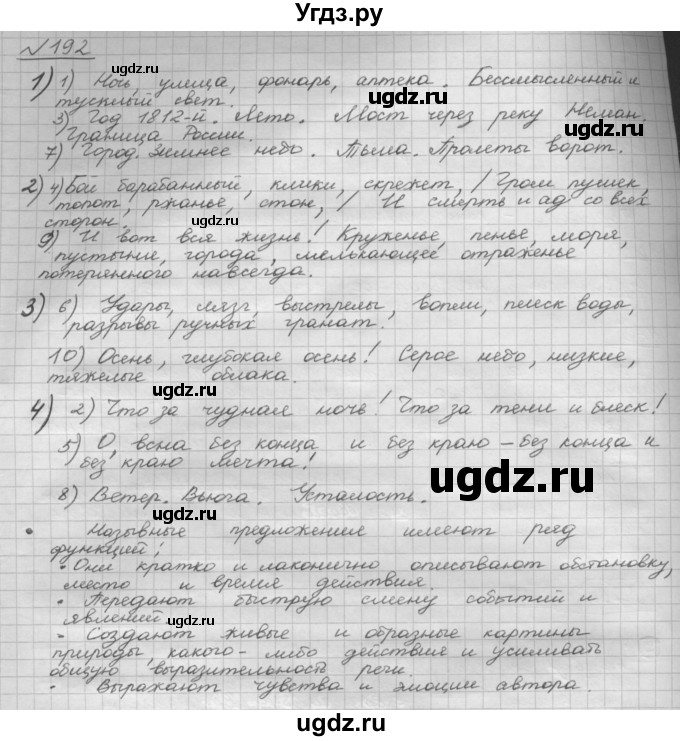 Угдз.ру
№192
1) 1) Ночь, улица, фонарь, аптека. Бессмысленный и
тусклый свет.
3) Год 1812-й. Лето. Мост через реку Неман.
Граница России.
7) Город. Зимнее небо. Тьма. Пролеты ворот.
2) 4) Бой барабанный, клики, скрежет, / Гром пушек,
топот, ржанье, стон, / И смерть и ад со всех
сторон.
9) И вот вся жизнь! Круженье, пенье, моря,
пустыни, города, мелькающее отраженье
потерянного навсегда.
3) 6) Удары, лязг, выстрелы, вопли, плеск воды,
разрывы ручных гранат.
ugdz.ru
10) Осень, глубокая осень! Серое небо, низкие,
тяжелые облака.
ugdz.ru
4) 2) Что за чудная ночь! Что за тени и блеск!
5) О, весна без конца и без краю – без конца и
без краю мечта!
ugdz.ru
8) Ветер. Вьюга. Усталость.
• Назывные предложение имеют ряд
функций:
• Они кратко и лаконично описывают обстановку,
место и время действия.
• Передают быструю смену событий и
явлений.
• Создают живые и образные картины
природы, какого-либо действия и усиливать
общую выразительность речи.
• Выражают чувства и эмоции автора.
ugdz.ru